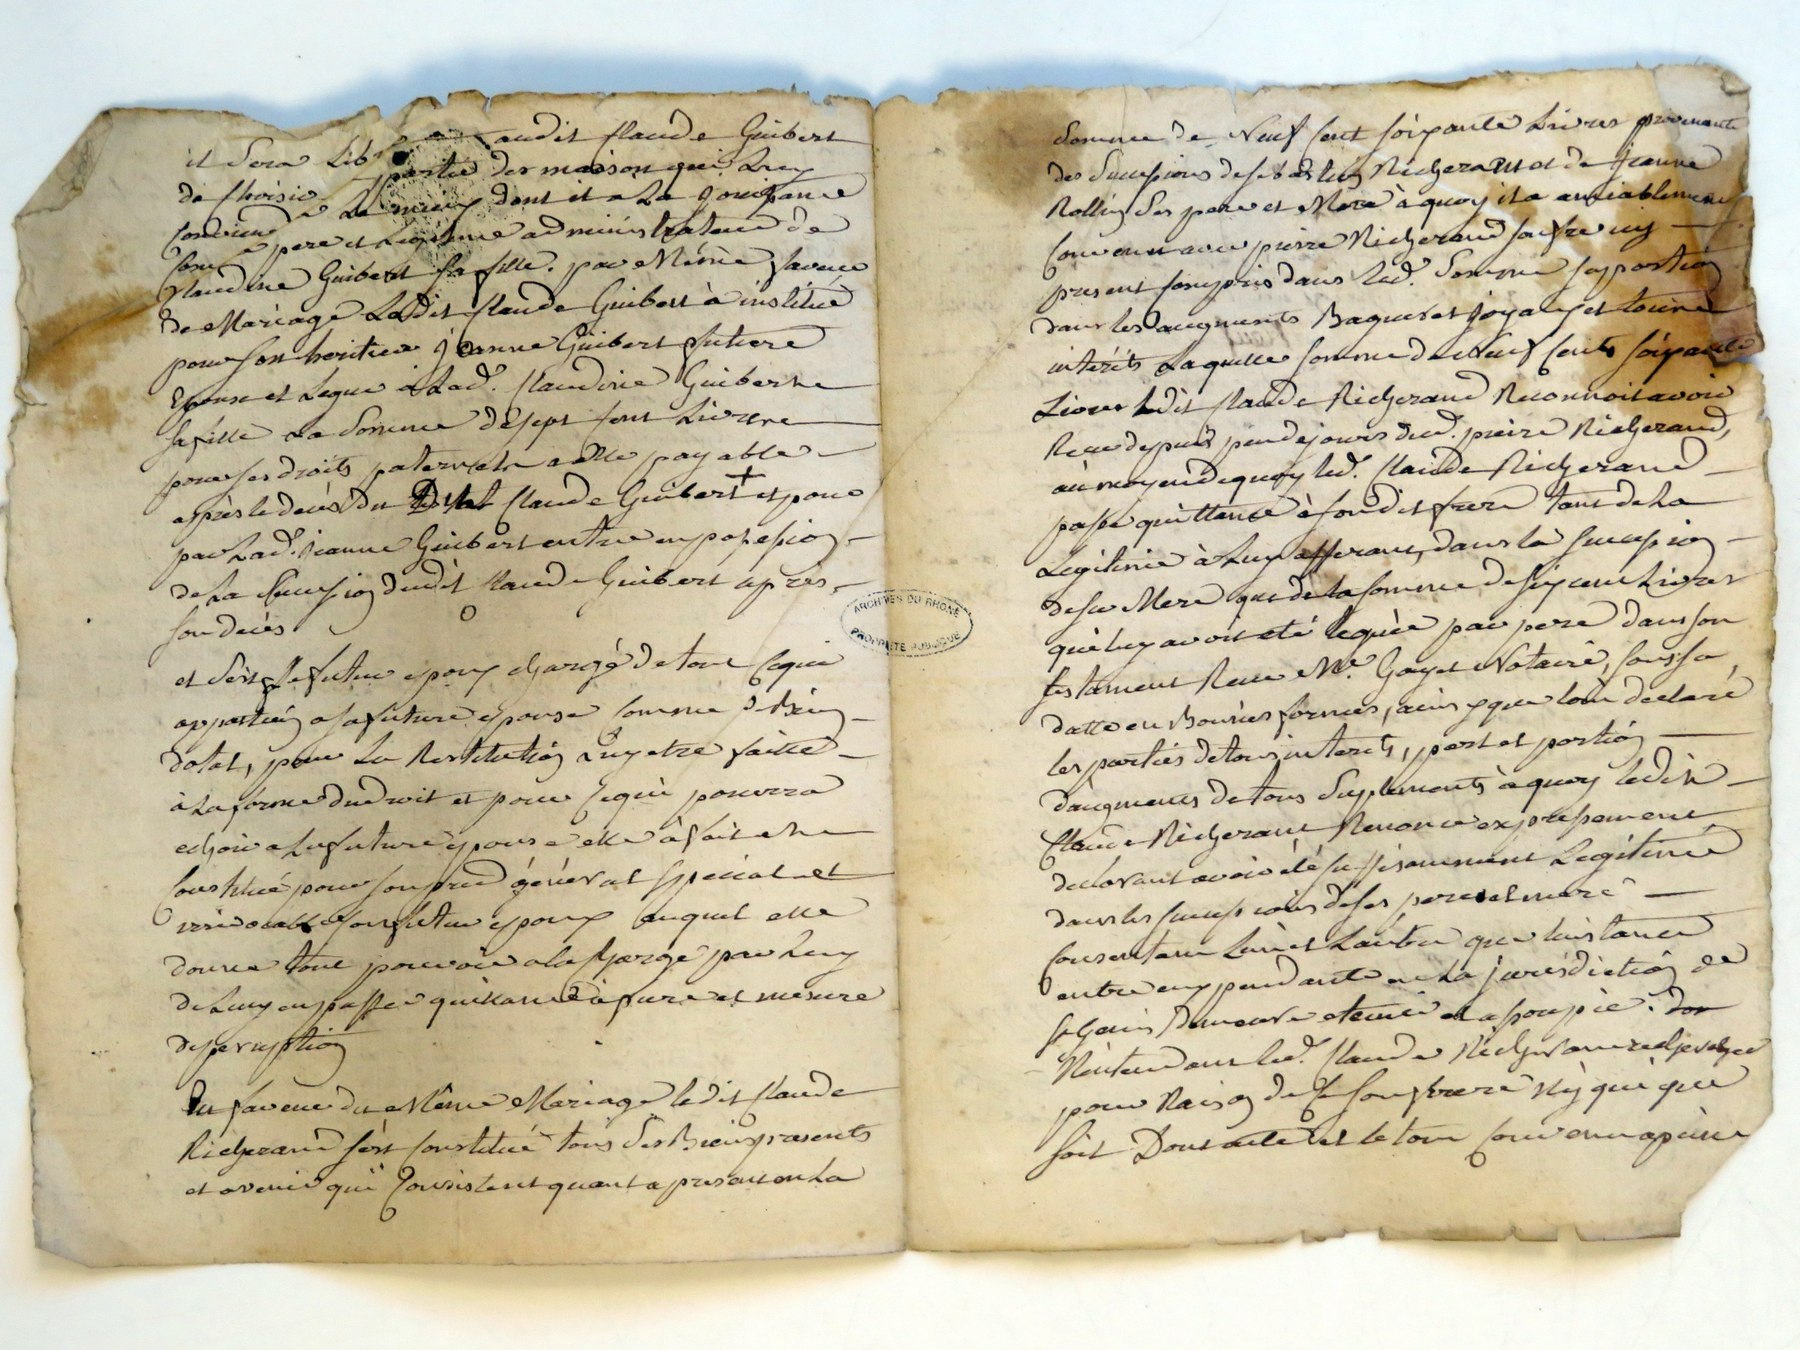 il sera lib audit Claude Guibert
de choisir partie des maison qui luy
convien le mieux dont il a la jouissance
com pere et legitime administrateur de
Claudine Guibert sa fille. par Même faveur
de Mariage Ledit Claude Guibert à institué
pour son heritiere jeanne Guibert future
Epouse et Legue à Lad.e Claudine Guibert
sa fille La Somme de sept cent Livres
pour ses droits paternels a elle payable
après le deces du Dit Claude Guibert + et pour
par Lad. jeanne Guibert entrer en possession
de La Succession dudit Claude Guibert après
son deces
et s'est le futur epoux chargé de tout ce qui
appartien a sa future epouse comme de bien
dotal, pour La Restitution luy etre faitte
à La forme du droit et pour ce qui pourra
echoir a La future epouse elle à fait et
constitué pour son prud général special et
irrévocable son futur epoux auquel elle
donne tout pouvoir a la Charge par Luy
de Luy en passer quittance à fure et mesure
de perception
En faveur du Même Mariage ledit Claude
Richerand s'est constitué tous Ses Biens presents
et avenir qui Consistent quant a present en La
Somme de Neuf Cent soixante Livres provenante
des Successions de sebastien Richerant et de jeanne
Rollin Ses pere et Mere à quoy il a amiablement
convenu avec pierre Richerand son frere icy
present compris dans lad.e Somme sa portion
dans les augments Bagues et joyaux et tous
intérêts Laquelle somme de Neuf Cents soixante
Livres ledit Claude Richerand Reconnoit avoir
Recu depuis peu de jours dud. pierre Richerand,
au moyen de quoy led. Claude Richerand
passe quittance à son dit frere tant de La
Legitime à Luy afferant, dans la succession
de sa Mere que de la somme de six cent Livres
qui luy avoit eté leguée par pere dans son
testament Recu Me. Gayet Notaire, sous sa
datte en Bonnes formes, ainsy que l'on declaré
les parties de tous interets, part et portion
daugments de tous Suplements à quoy ledit
Claude Richerant Renonce expressement
declarant avoir été suffisamment Legitimé
dans les successions de ses pere et mere
Consentant L'un et L'autre que linstance
entre eux pendante en La jurisdiction de
st Genis Demeure eteinte et assoupie. don
N'entendant led. Claude Richerant
pour Raison de ce son frere N'y qui que
soit Dont acte et le tout convenu après
ARCHIVES DU RHONE
PROPRIETE PUBLIQUE